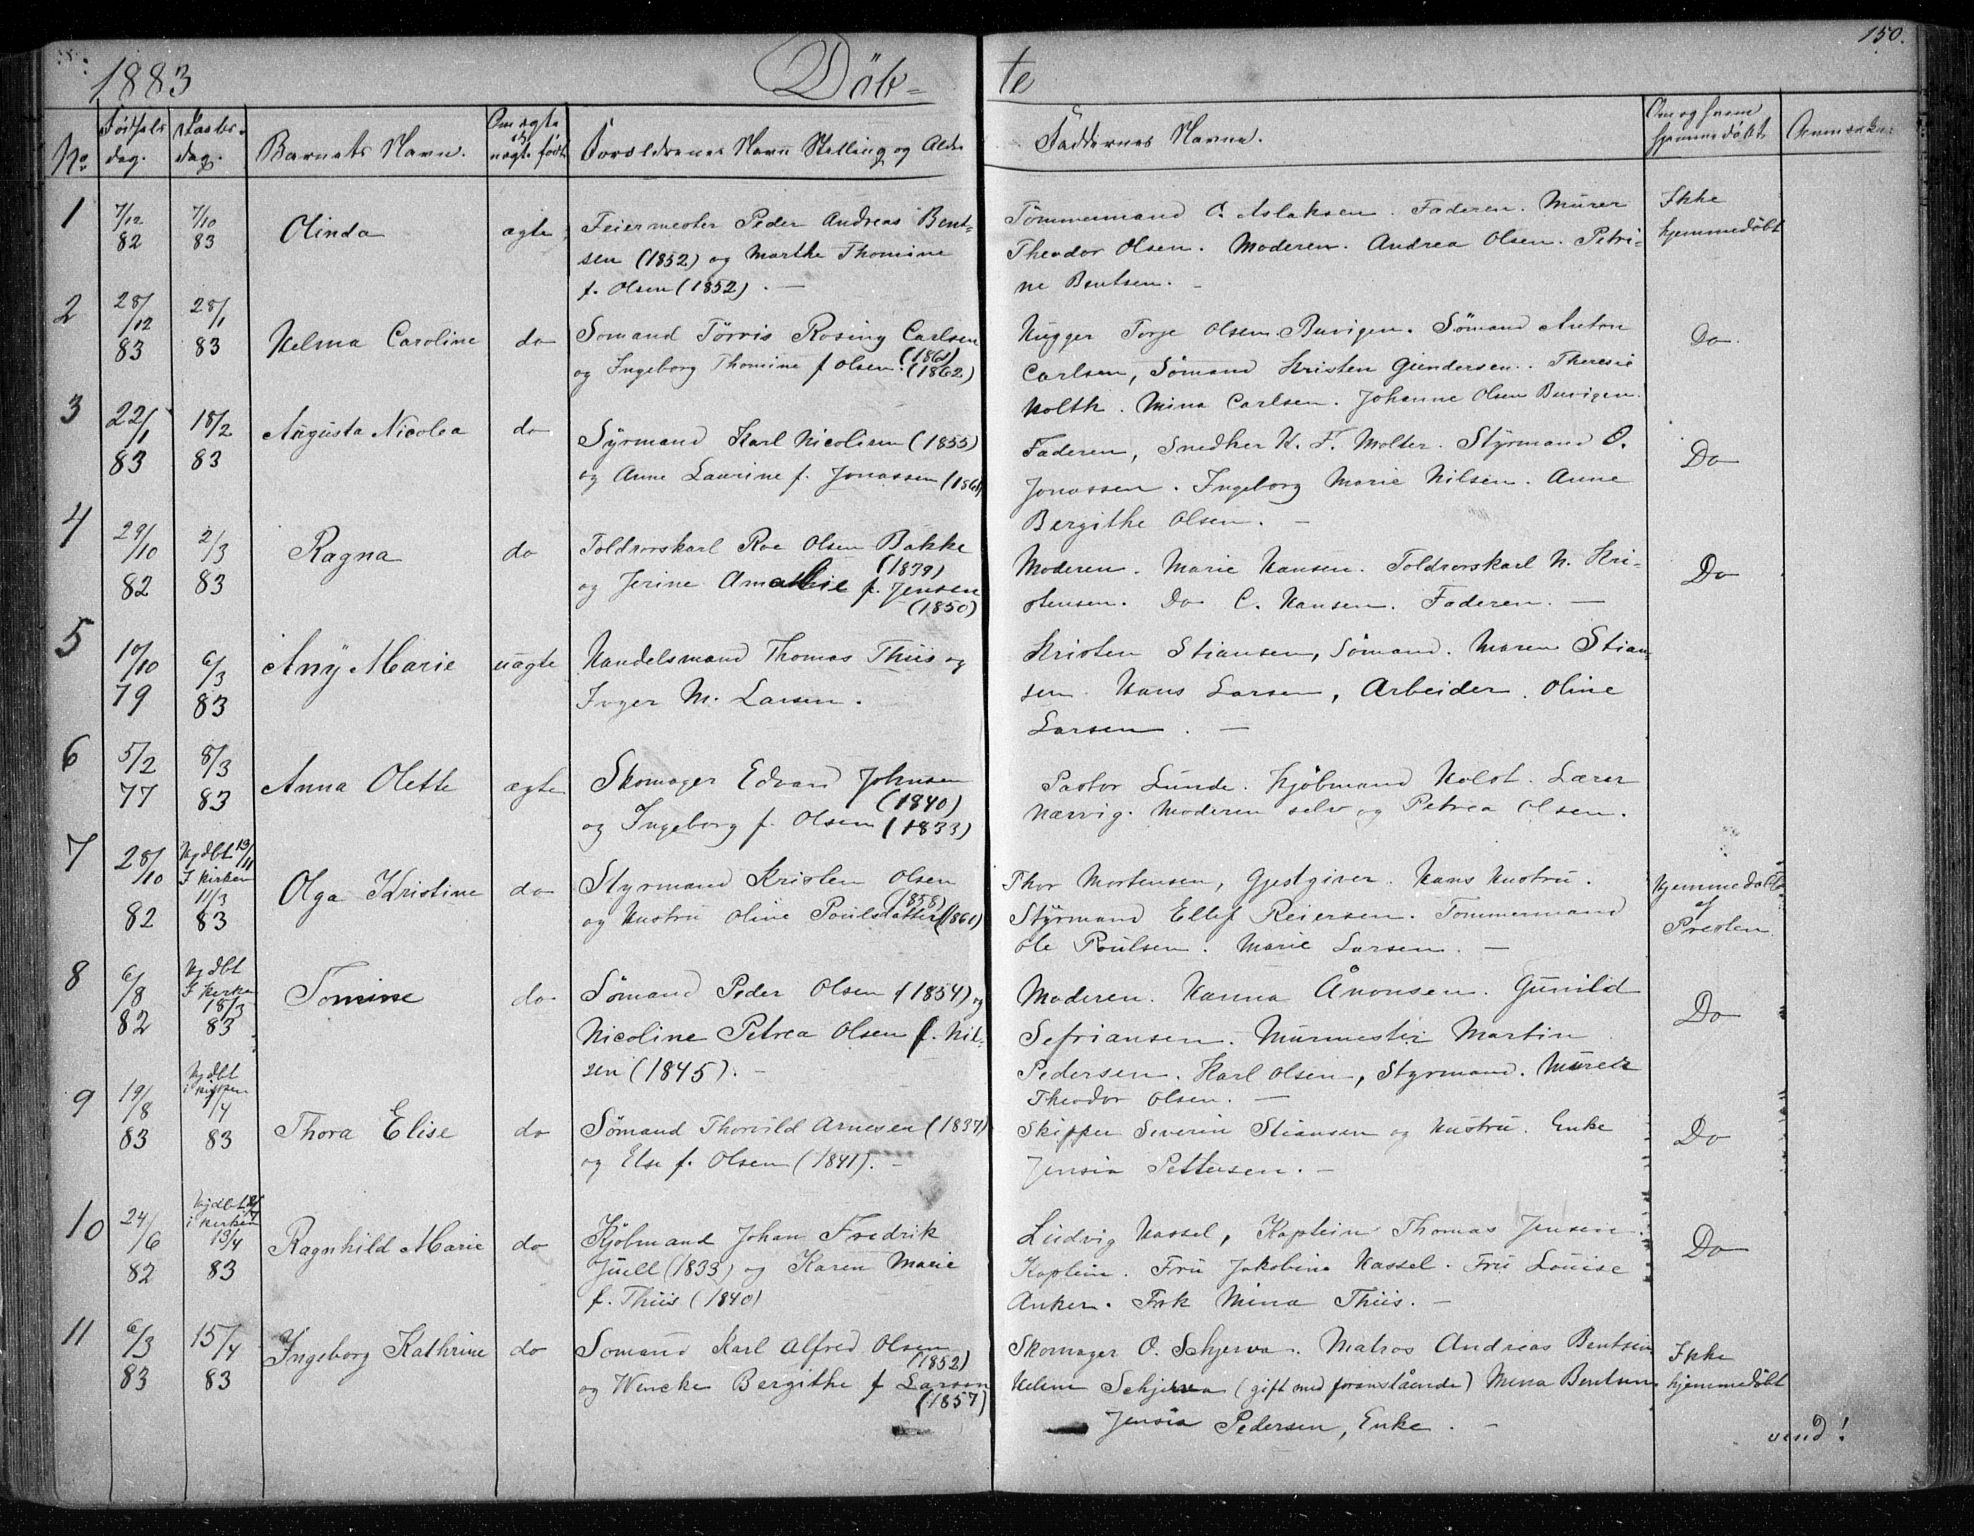 150.
1883 Döb= te
No. Fødsels dag. Daabs- dag. Barnets Navn. Om ægte eller uægte født Forældrenes Navn Stilling og Alder Faddernes Navne. Om og hvem hjemmedøbt Anmærkn:
1 7/12 82 7/10 83 Olinda ægte, Feiermester Peder Andreas Bent-
sen (1852) og Marthe Thomine
f. Olsen (1852). —
Tømmermand O. Aslaksen. Faderen. Murer
Theodor Olsen. Moderen. Andrea Olsen. Petri-
ne Bentsen. —
Ikke
hjemmedøbt
2 28/12 83 28/1 83 Helma Caroline do Sømand Tørris Rosing Carlsen
(1861)
og Ingeborg Thomine f Olsen. (1862)
Hugger Torje Olsen Buvigen. Sømand Anton
Carlsen, Sømand Kristen Gundersen. Theresie
Holth. Mina Carlsen. Johanne Olsen Buvigen.
Do.
3 22/1 83 18/2 83 Augusta Nicolea do Syrmand Karl Nicolisen (1855)
og Anne Laurine f. Jonassen (1861)
Faderen, Snedker H. F. Molter. Styrmand O.
Jonassen. Ingeborg Marie Nilsen. Anne
Bergithe Olsen. —
Do
4 29/10 82 2/3 83 Ragna do Toldrorskarl Roe Olsen Bakke
(1879)
og Jerine Amalie f. Jensen
(1850)
Moderen. Marie Hansen. Toldrorskarl N. Kri-
stensen. Do C. Hansen. Faderen. —
Do
5 10/10 79 6/3 83 Any Marie uægte Handelsmand Thomas Thiis og
Inger M. Larsen.
Kristen Stiansen, Sømand. Maren Stian-
sen. Hans Larsen, Arbeider. Oline
Larsen. —
6 5/2 77 8/3 83 Anna Olette ægte Skomager Edvard Johnsen
(1840)
og Ingeborg f. Olsen (1833)
Pastor Lunde. Kjöbmand Holst. Lærer
Nærvig. Moderen selv og Petrea Olsen.
7 28/10 82 Hjdbt 13/11 I Kirken 11/3 83 Olga Kristine do Styrmand Kristen Olsen
(1858)
og Hustru Oline Poulsdatter (1861)
Thor Mortensen, Gjestgiver. Hans Hustru.
Styrmand Ellef Reiersen. Tømmermand
Ole Poulsen. Marie Larsen. —
Hjemmedøbt
af
Presten
8 6/8 82 Hjdbt I Kirke 18/3 83 Tomine do Sømand Peder Olsen (1854) og
Nicoline Petrea Olsen f. Nil-
sen (1845). —
Moderen. Hanna Ånonsen. Gunild
Sefriansen. Murmester Martin
Pedersen. Karl Olsen, Styrmand. Murer
Theodor Olsen. —
Do
9 19/8 83 Hjdbt i Kirken 1/4 83 Thora Elise do Sømand Thorvild Arnesen (1837)
og Else f. Olsen (1841). —
Skipper Severin Stiansen og Hustru. Enke
Jensia Pettersen. —
Do
10 24/6 82 Hjdbt i Kirken 13/4 83 Ragnhild Marie do Kjöbmand Johan Fredrik
Juell (1833) og Karen Marie
f. Thiis (1840)
Ludvig Hassel, Kaptein Thomas Jensen
Kaptein. Fru Jakobine Hassel. Fru Louise
Anker. Frk Mina Thiis. —
Do
11 6/3 83 15/4 83 Ingeborg Kathrine do Sømand Karl Alfred Olsen
(1852)
og Wencke Bergithe f Larsen
(1857)
Skomager O. Schjerva. Matros Andreas Bentsen
Helene Schjerva (gift med foranstående) Mina Bentsen
Jensia Pedersen, Enke. —
Ikke
hjemmedøbt
vend!